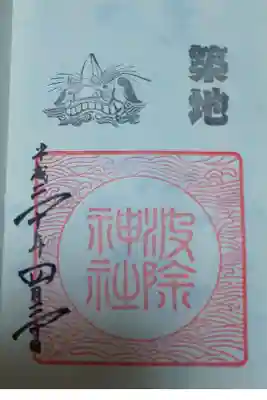 築地
波除
神社
平成二十年四月二十日